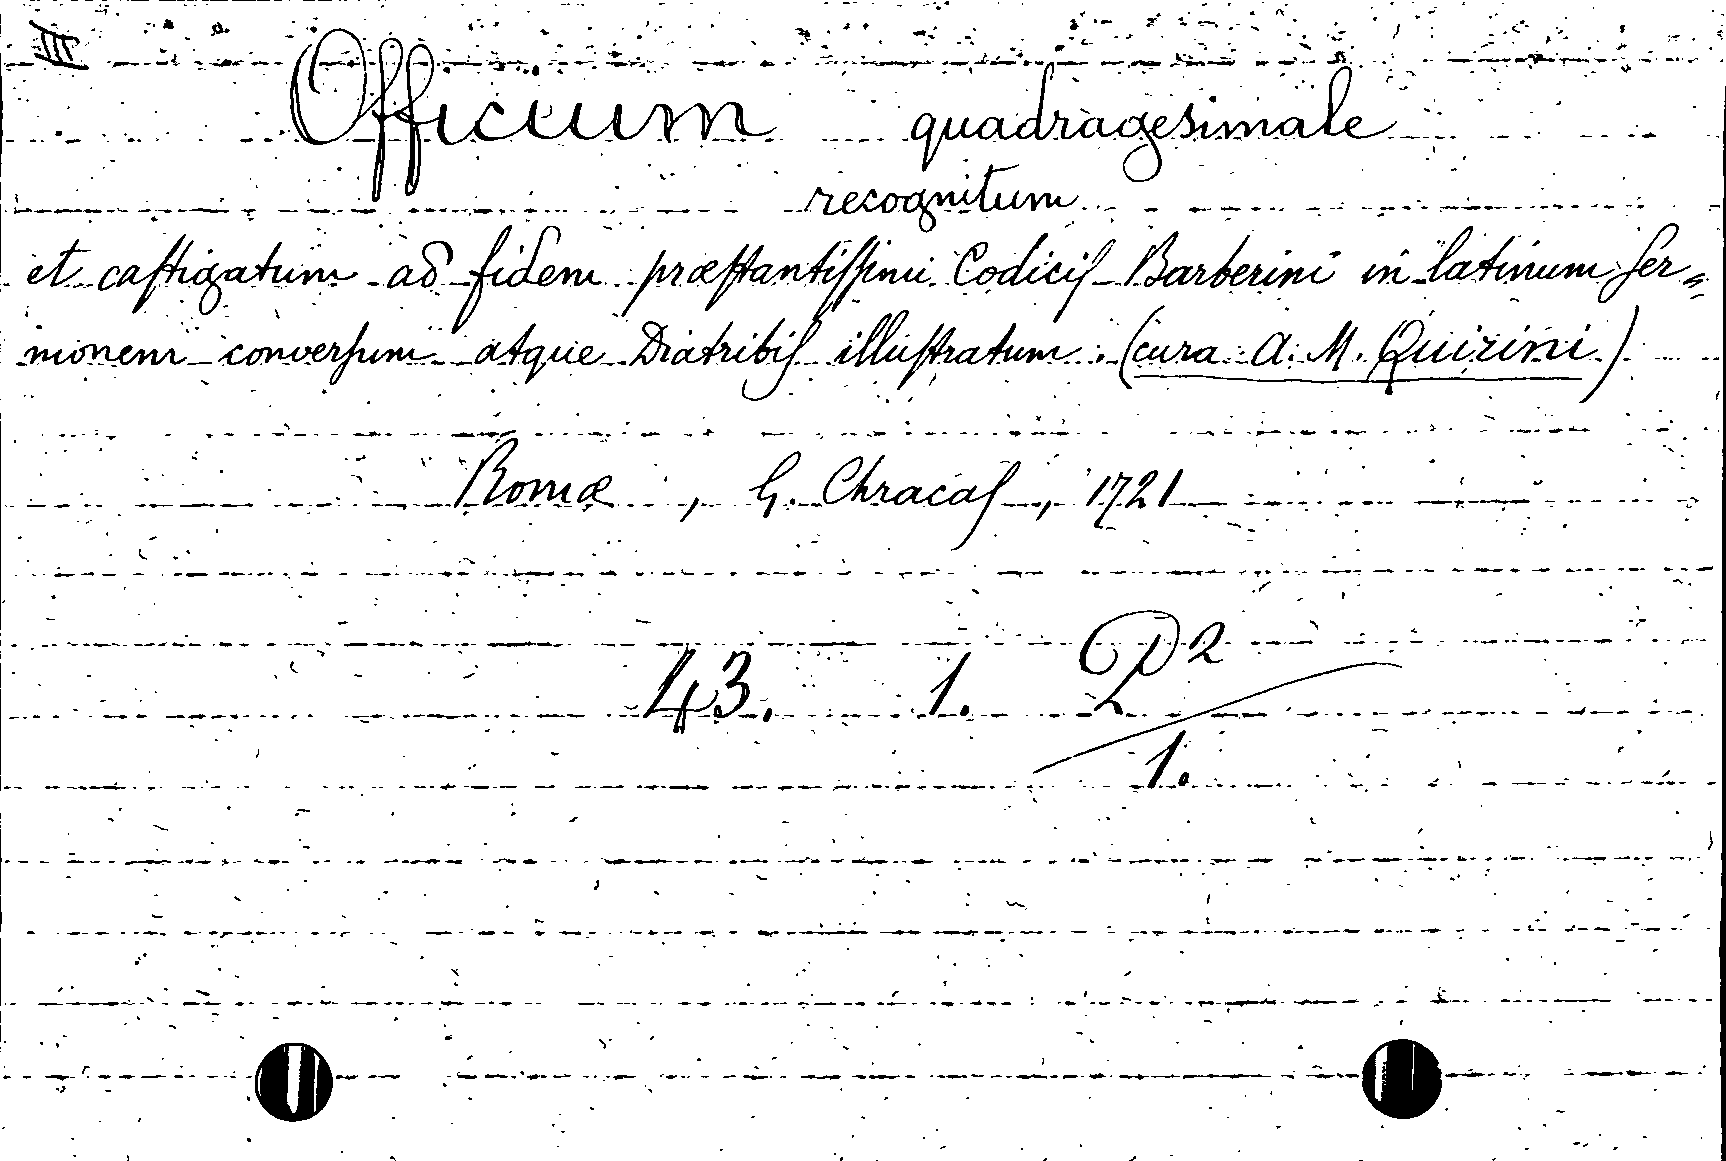 III
Officium quadragesimale
recognitum
et caſtigatum ad fidem præſtantiſſimi Codiciſ Barberini in latinum ſer=
monem converſum atque Diatribiſ illuſtratum. (cura A. M. Quirini)
Romæ, G. Chracaſ, 1721
43. 1. P 2
1.